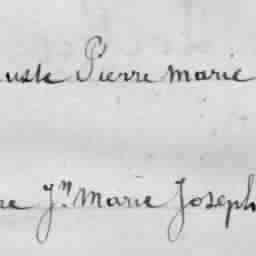 uste Pierre Marie
ne Jn. Marie Joseph